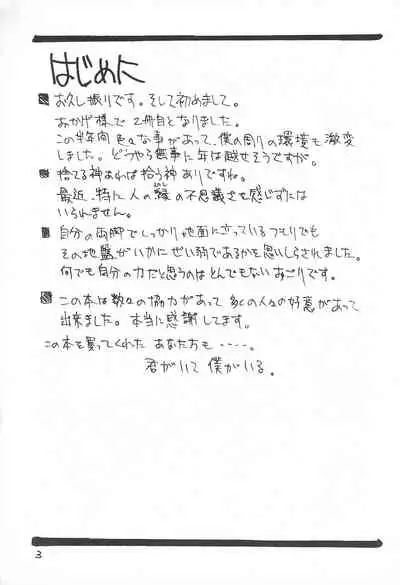 はじめに
お久し振りです。そして初めまして。
おかげ様で2冊目となりました。
この半年間色々な事があって、僕の周りの環境も激変
しました。どうやら無事に年は越せそうですが。
捨てる神あれば拾う神ありですね。
最近、特に人の縁の不思議さを感じずには
いられません。
自分の両脚でしっかり地面に立っているつもりでも
その地盤がいかにぜい弱であるかを思いしらされました。
何でも自分の力だと思うのはとんでもないおごりです。
この本は数々の協力があって多くの人々の好意があって
出来ました。本当に感謝してます。
この本を買ってくれたあなた方も‥‥‥。
君がいて僕がいる。
3